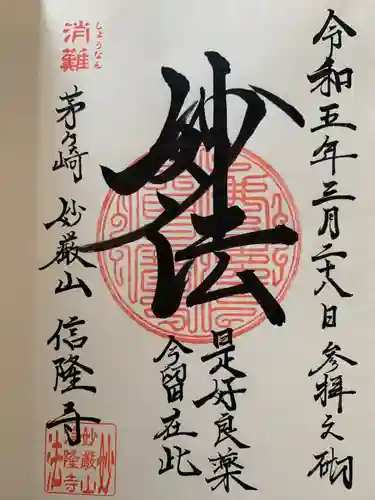 令和五年三月二十八日 参拝之砌
妙法
是好良薬
今留在此
消難
しょうなん
茅ヶ崎 妙厳山 信隆寺
妙法
妙厳山
信隆寺